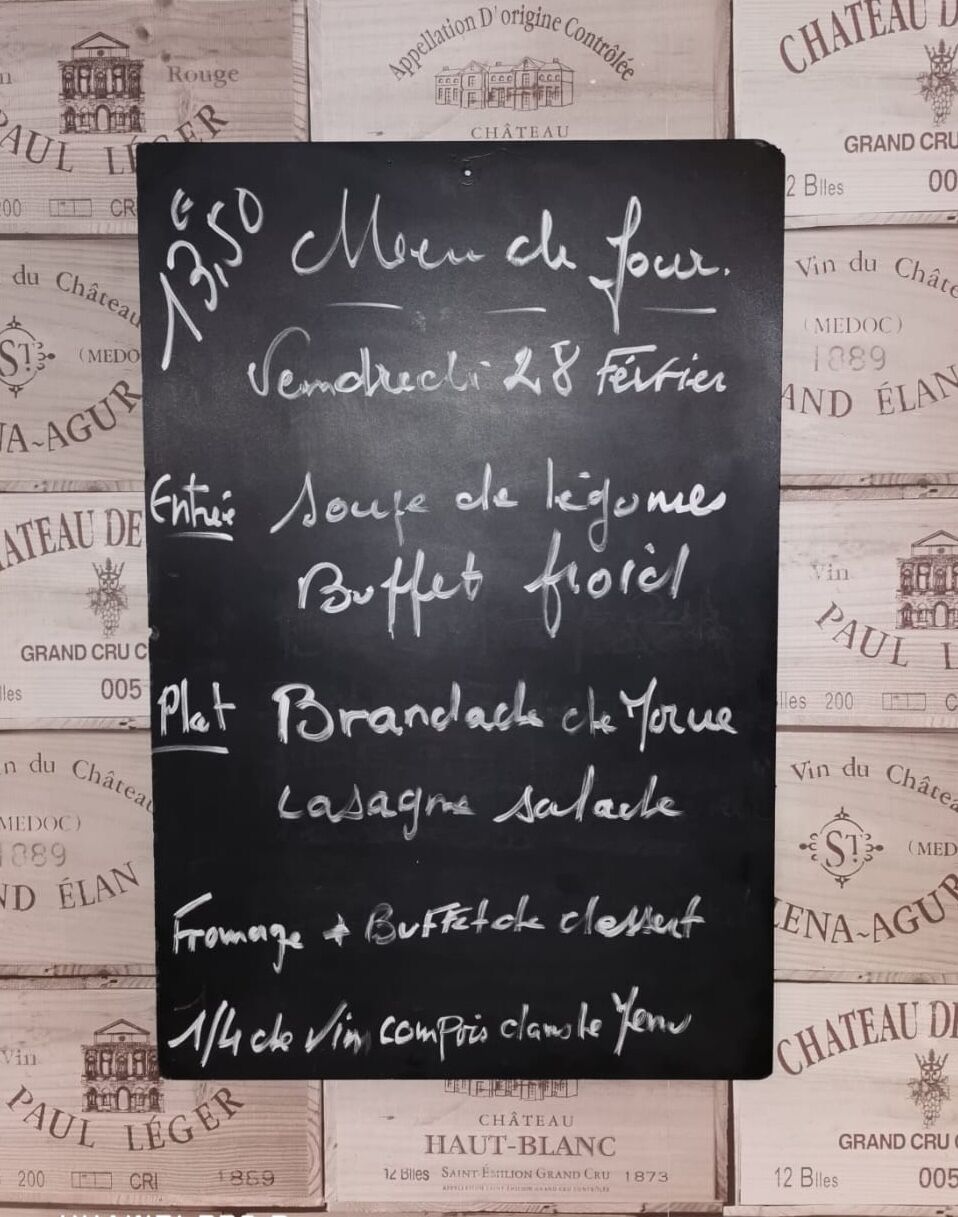 Vin Rouge
PAUL LÉGER
200 CR
Appellation D'origine Contrôlée
CHÂTEAU
CHATEAU D
GRAND CRU
2 Blles 00
€
13,50
Menu de Jour.
Vendredi 28 Février
Entrée Soupe de légumes
Buffet froid
Plat Brandade de Morue
Lasagne salade
Fromage + Buffet de dessert
1/4 de Vin compris dans le Menu
du Château
ST (MEDO
NA~AGUR
ATEAU DE
GRAND CRU C
lles 005
n du Château
MEDOC)
1889
ND ÉLAN
Vin
PAUL LÉGER
200 CRI 1889
Vin du Châte
(MEDOC)
1889
AND ÉLAN
Vin
PAUL L
lles 200 C
Vin du Château
ST (MED
LENA~AGUR
CHATEAU DE
GRAND CRU C
12 Blles 005
CHÂTEAU
HAUT-BLANC
12 Blles SAINT-ÉMILION GRAND CRU 1873